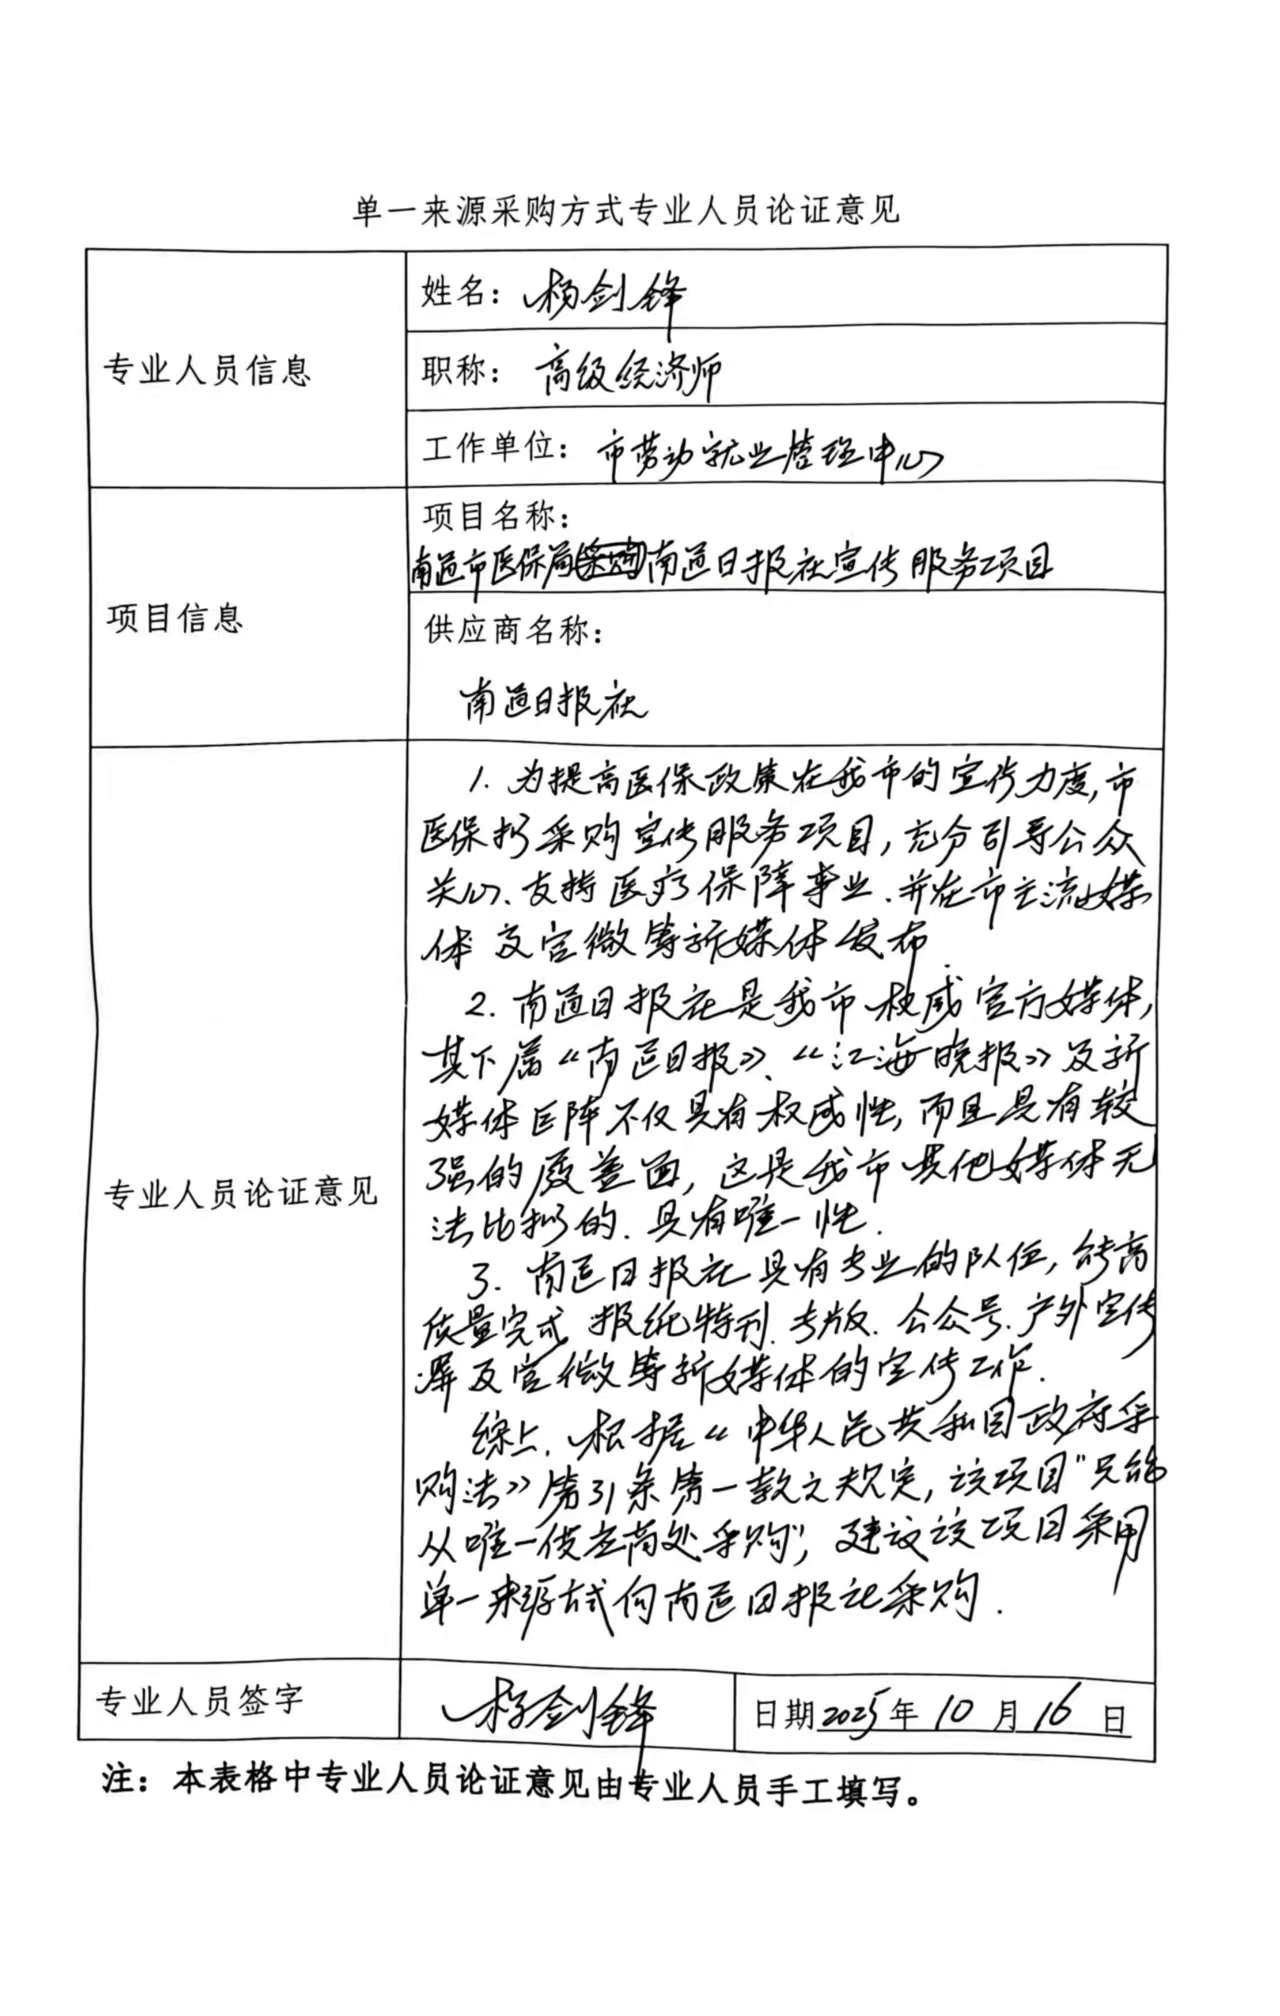 单一来源采购方式专业人员论证意见
专业人员信息
姓名：杨剑锋
职称：高级经济师
工作单位：市劳动就业管理中心
项目信息
项目名称：
南通市医保局南通日报社宣传服务项目
供应商名称：
南通日报社
专业人员论证意见
1. 为提高医保政策在我市的宣传力度，市
医保拟采购宣传服务项目，充分引导公众
关心、支持医疗保障事业、并在市主流媒
体及官微等新媒体发布.
2. 南通日报社是我市权威官方媒体，
其下属《南通日报》、《江海晚报》及新
媒体矩阵不仅具有权威性，而且具有较
强的覆盖面，这是我市其他媒体无
法比拟的.具有唯一性.
3. 南通日报社具有专业的队伍，能高
质量完成报纸特刊、专版、公众号、户外宣传
屏及官微等新媒体的宣传工作.
综上，根据《中华人民共和国政府采
购法》第31条第一款之规定，该项目"只能
从唯一供应商处采购"，建议该项目采用
单一来源方式向南通日报社采购.
专业人员签字
杨剑锋
日期2025年10月16日
注：本表格中专业人员论证意见由专业人员手工填写。